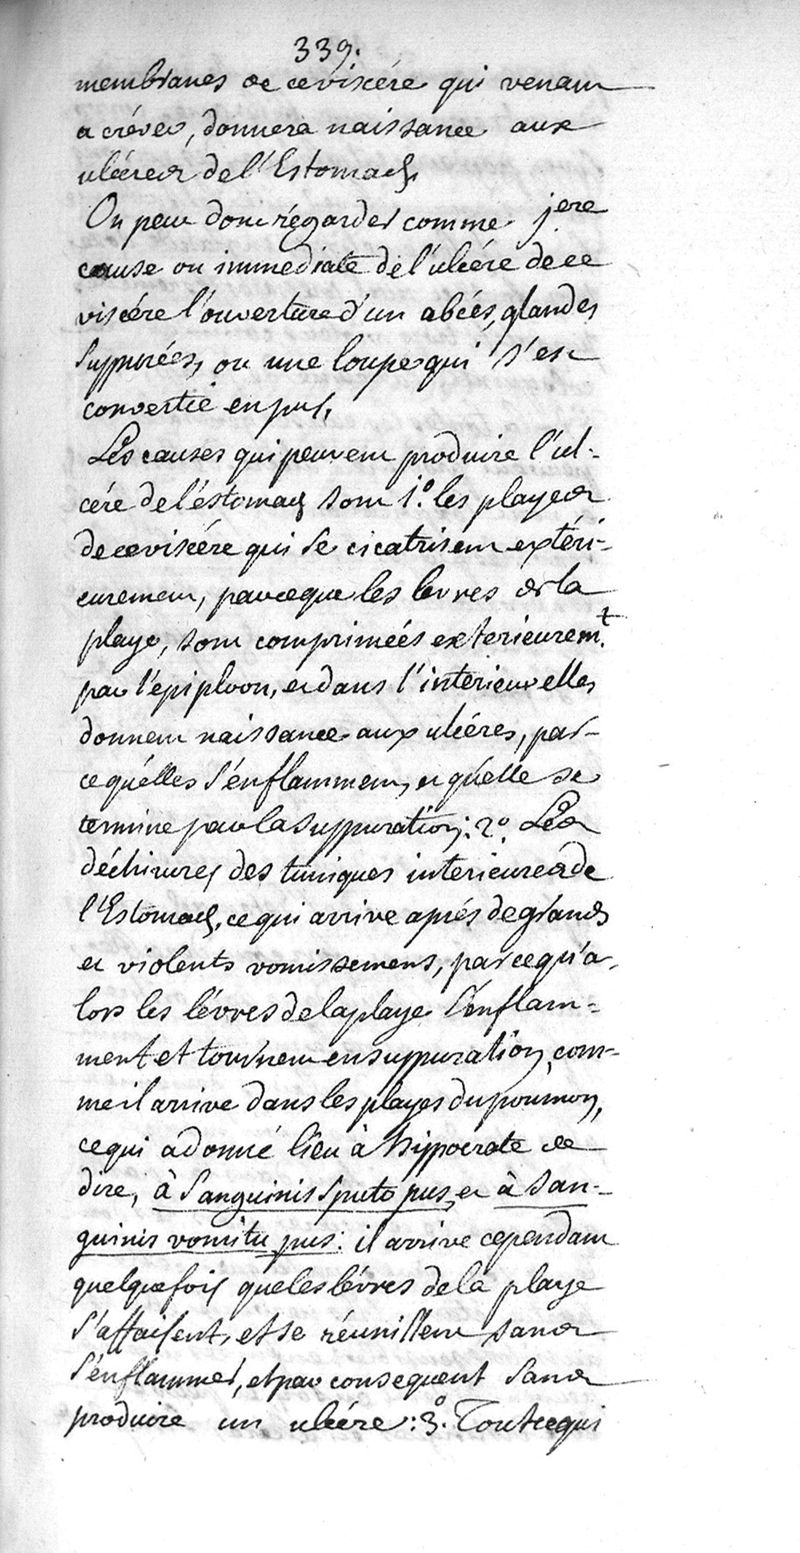 339.
membranes de ce viscére qui venant
a créver, donnera naissance aux
ulceres de l'Estomach.
On peut donc régarder comme jere
cause ou immediate de l'ulcére de ce
viscére l'ouverture d'un abcés, glandes
suppurées, ou une loupe qui s'est
convertie en pus,
Les causes qui peuvent produire l'ul-
cére de l'éstomach sont 1.° les playes
de ce viscére qui se cicatrisent extéri-
eurement, parceque les levres de la
playe, sont comprimées exterieurem.t
par l'épiploon, et dans l'intérieur elles
donnent naissance aux ulcéres, par-
ce qu'élles s'énflamment, et qu'elle se
termine par la suppuration: 2.° Les
déchirures des tuniques interieures de
l'Estomach, ce qui arrive aprés de grands
et violents vomissemens, parcequ'a-
lors les lévres de la playe s'énflam-
ment et tournent en suppuration, com-
me il arrive dans les playes du poumon,
ce qui a donné lieu à hippocrate de
dire, à Sanguinis Sputo pus, et à san-
guinis vomitu pus: il arrive cependant
quelquefois que les lévres de la playe
s'affaissent, et se réunissent sans
s'énflammer, et par consequent sans
produire un ulcére: 3.° Tout ce qui